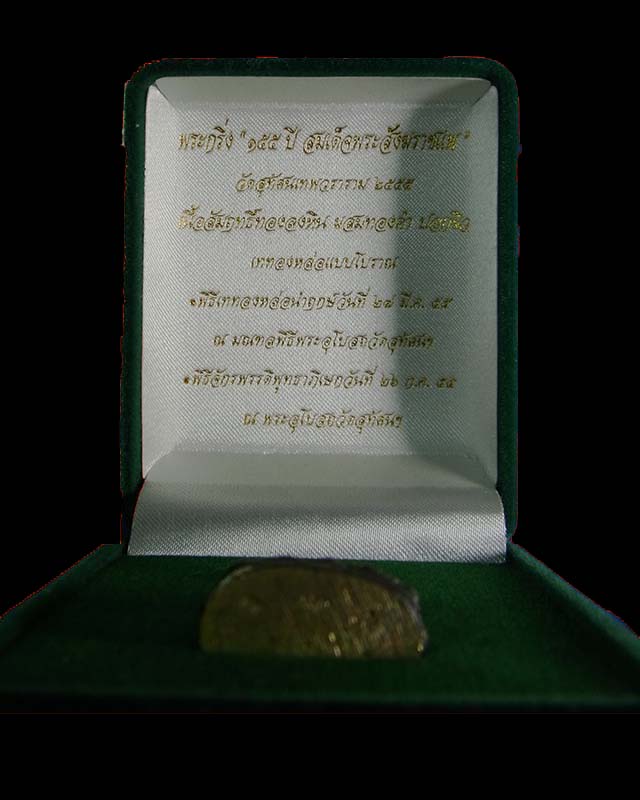 พระกริ่ง "๑๕๕ ปี สมเด็จพระสังฆราชแพ"
วัดสุทัศนเทพวราราม ๒๕๕๕
เนื้อสัมฤทธิ์ทองลงหิน ผสมทองคำ ปอกผิว
เททองหล่อแบบโบราณ
•พิธีเททองหล่อนำฤกษ์วันที่ ๒๘ มี.ค. ๕๕
ณ มณฑลพิธีพระอุโบสถวัดสุทัศนฯ
•พิธีจักรพรรดิพุทธาภิเษกวันที่ ๒๖ ก.ค. ๕๕
ณ พระอุโบสถวัดสุทัศนฯ